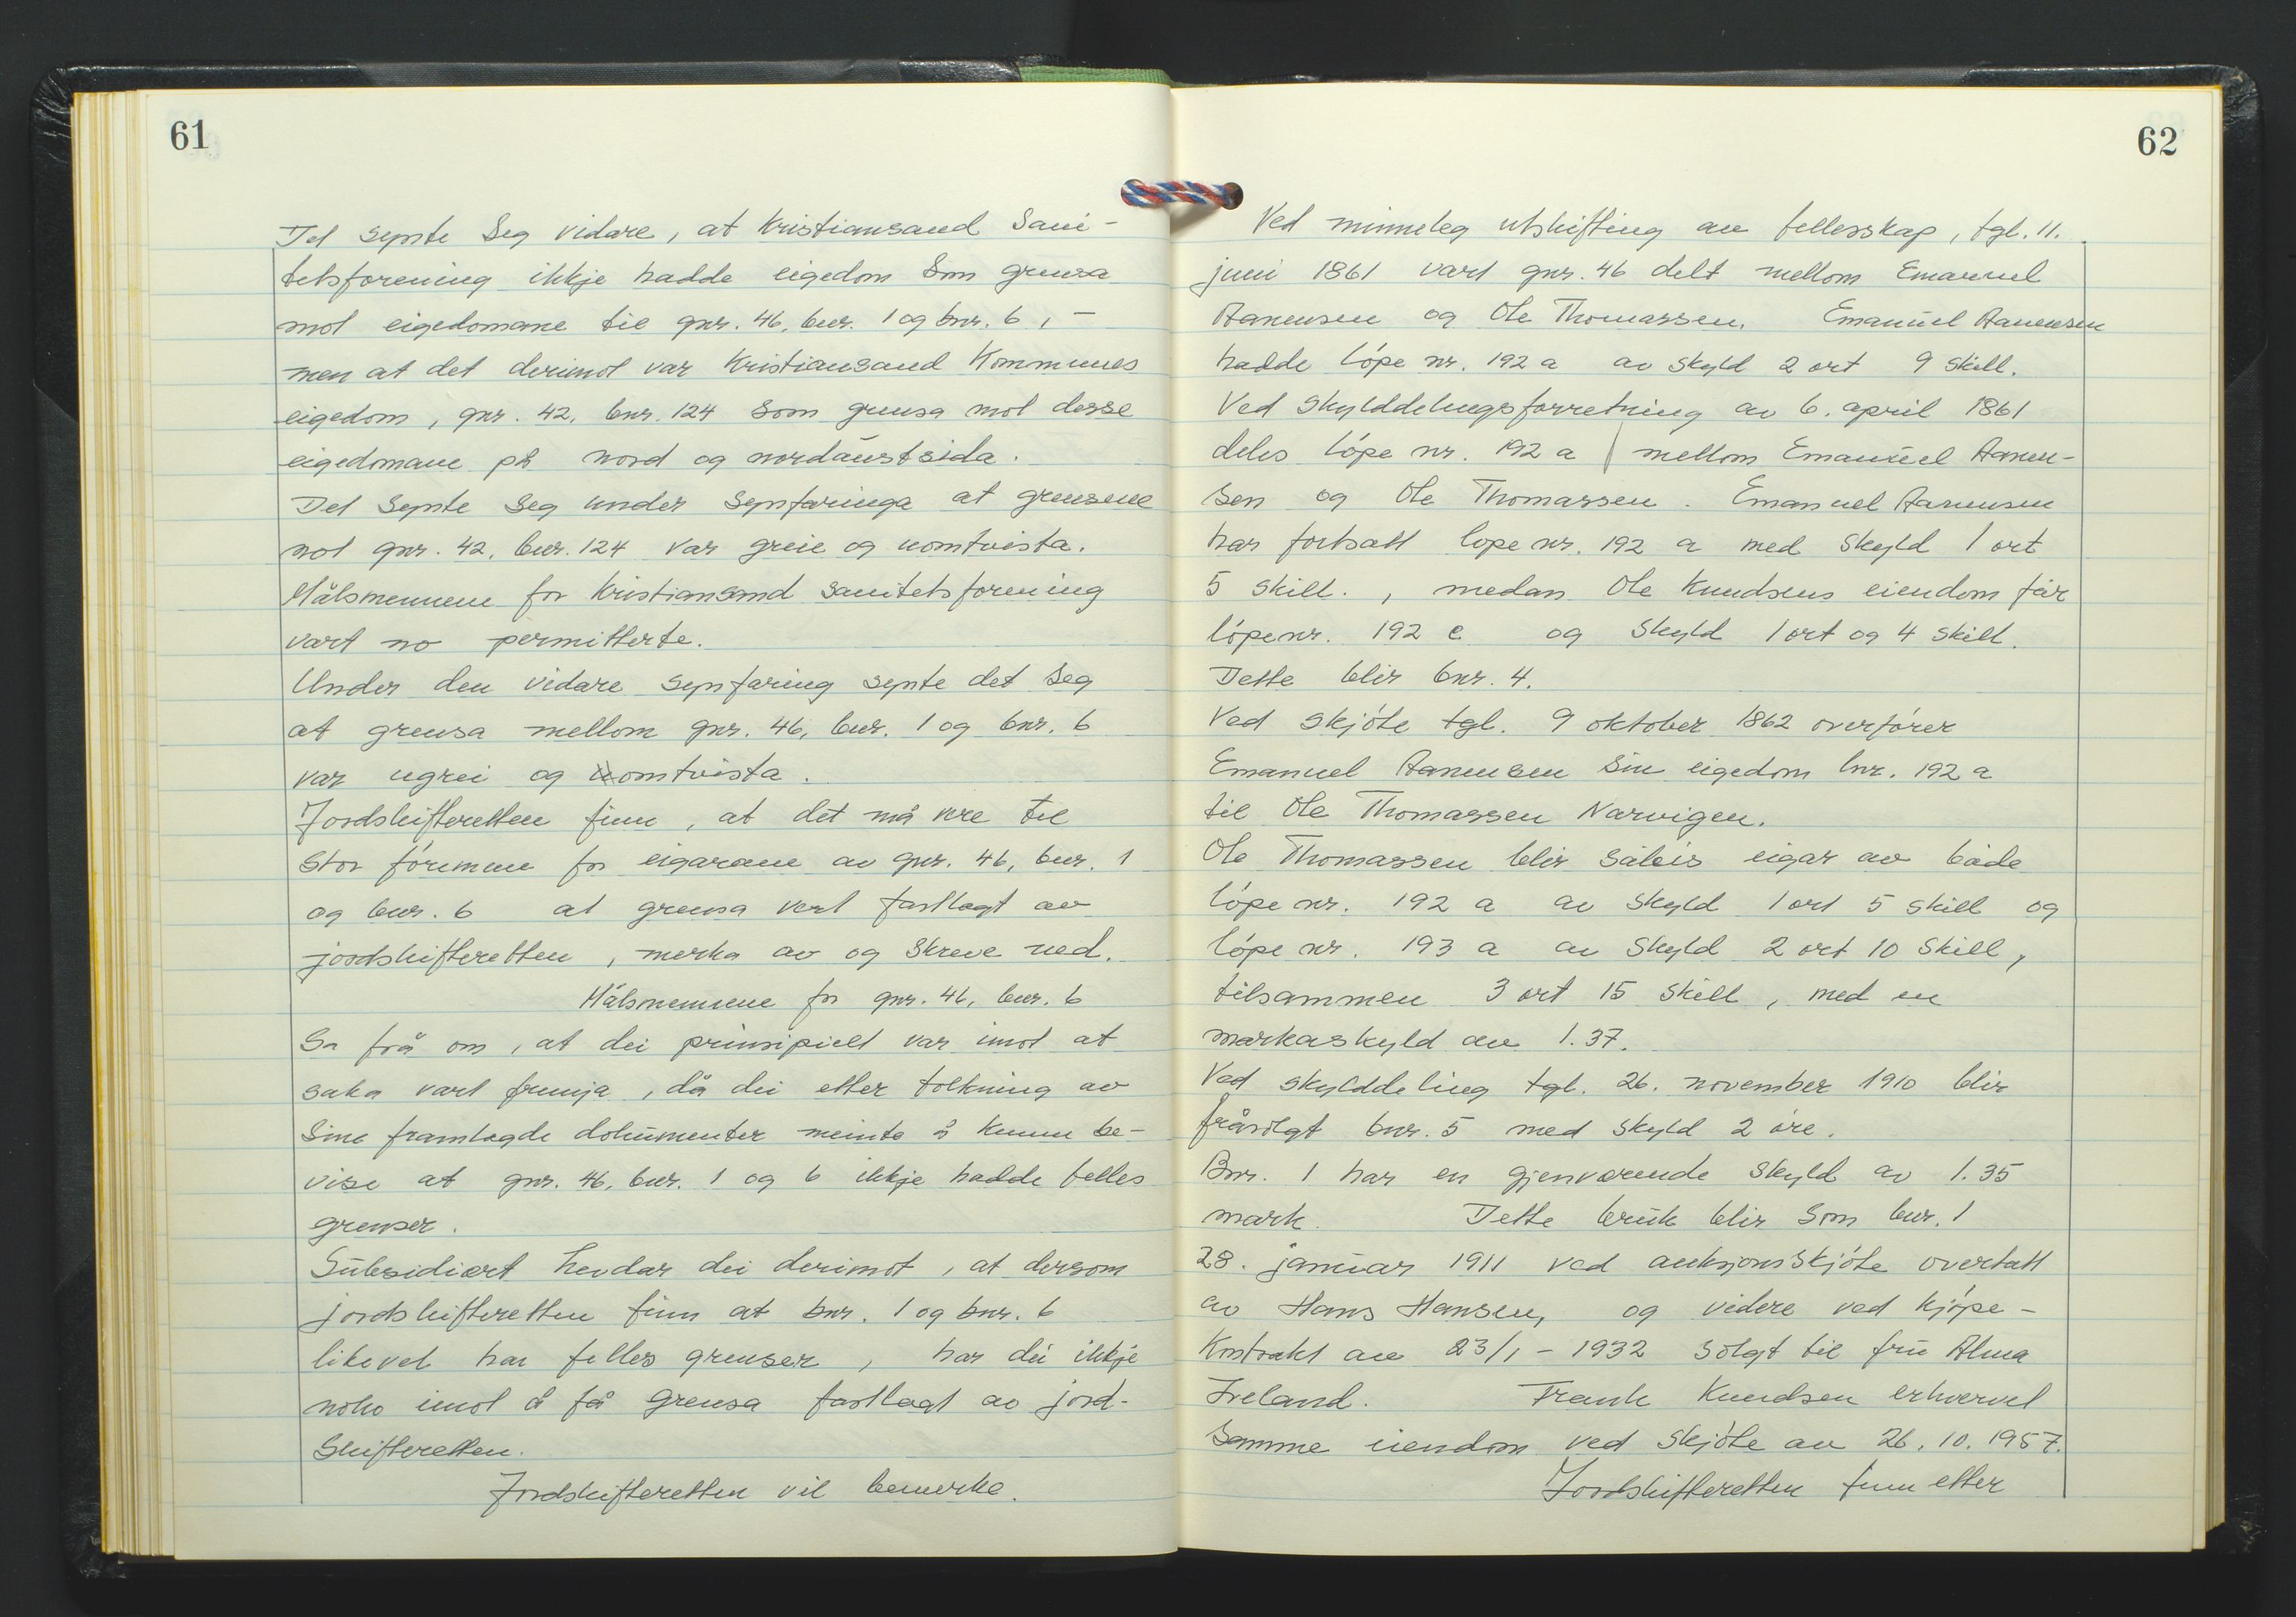 61
Det synte seg vidare, at Kristiansand Sani-
tetsforening ikkje hadde eigedom som grensa
mot eigedomane til gnr. 46, bnr. 1 og bnr. 6, -
men at det derimot var Kristiansand Kommunes
eigedom, gnr. 42, bnr. 124 som grensa mot desse
eigedomane på nord og nordaustsida.
Det synte seg under synfaringa at grensene
mot gnr. 42, bnr. 124 var greie og uomtvista.
Målsmennene for Kristiansand sanitetsforening
vart no permitterte.
Under den vidare synfaring synte det seg
at grensa mellom gnr. 46, bnr. 1 og bnr. 6
var ugrei og omtvista.
Jordskifteretten finn, at det må vere til
stor føremun for eigarane av gnr. 46, bnr. 1
og bnr. 6 at grensa vert fastlagt av
jordskifteretten, merka av og skreve ned.
Målsmennene for gnr. 46, bnr. 6
sa frå om, at dei prinsipielt var imot at
saka vart fremja, då dei etter tolkning av
sine framlagde dokumenter meinte å kunne be-
vise at gnr. 46, bnr. 1 og 6 ikkje hadde felles
grenser.
Subsidiært hevdar dei derimot, at dersom
jordskifteretten finn at bnr. 1 og bnr. 6
likevel har felles grenser, har dei ikkje
noko imot å få grensa fastlagt av jord-
skifteretten.
Jordskifteretten vil bemerke.
62
Ved minneleg utskifting av fellesskap, tgl. 11.
juni 1861 vart gnr. 46 delt mellom Emanuel
Aanensen og Ole Thomassen. Emanuel Aanensen
hadde løpe nr. 192 a av skyld 2 ort 9 skill.
Ved skylddelingsforretning av 6. april 1861
deles løpe nr. 192 a mellom Emanuel Aanen-
sen og Ole Thomassen. Emanuel Aanensen
har fortsatt lope nr. 192 a med skyld 1 ort
5 skill., medan Ole Knudsens eiendom får
løpenr. 192 c og skyld 1 ort og 4 skill.
Dette blir bnr. 4.
Ved skjøte tgl. 9 oktober 1862 overfører
Emanuel Aanensen sin eigedom lnr. 192 a
til Ole Thomassen Narvigen.
Ole Thomassen blir såleis eigar av både
løpe nr. 192 a av skyld 1 ort 5 skill og
løpe nr. 193 a av skyld 2 ort 10 skill,
tilsammen 3 ort 15 skill, med en
markaskyld av 1.37.
Ved skylddeling tgl. 26. november 1910 blir
fråsolgt bnr. 5 med skyld 2 øre.
Bnr. 1 har en gjenværende skyld av 1.35
mark. Dette bruk blir som bnr. 1
28. januar 1911 ved auksjonsskjøte overtatt
av Hans Hansen, og videre ved kjøpe-
kontrakt av 23/1 - 1932 solgt til fru Alma
Ireland. Frank Knudsen erhvervet
samme eiendom ved skjøte av 26. 10. 1957.
Jordskifteretten finn etter